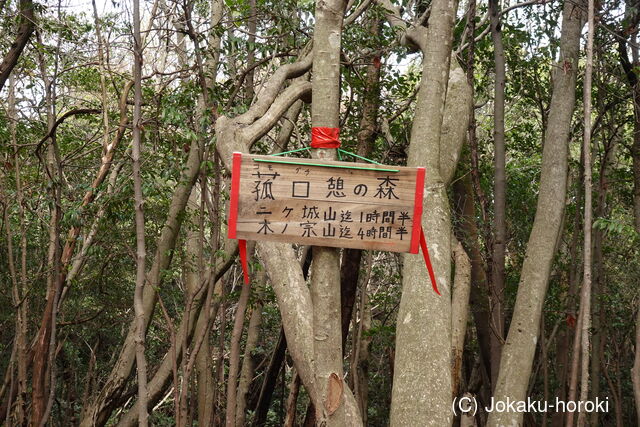 菰口憩の森
二ヶ城山迄1時間半
木ノ宗山迄4時間半
(C) Jokaku-horoki